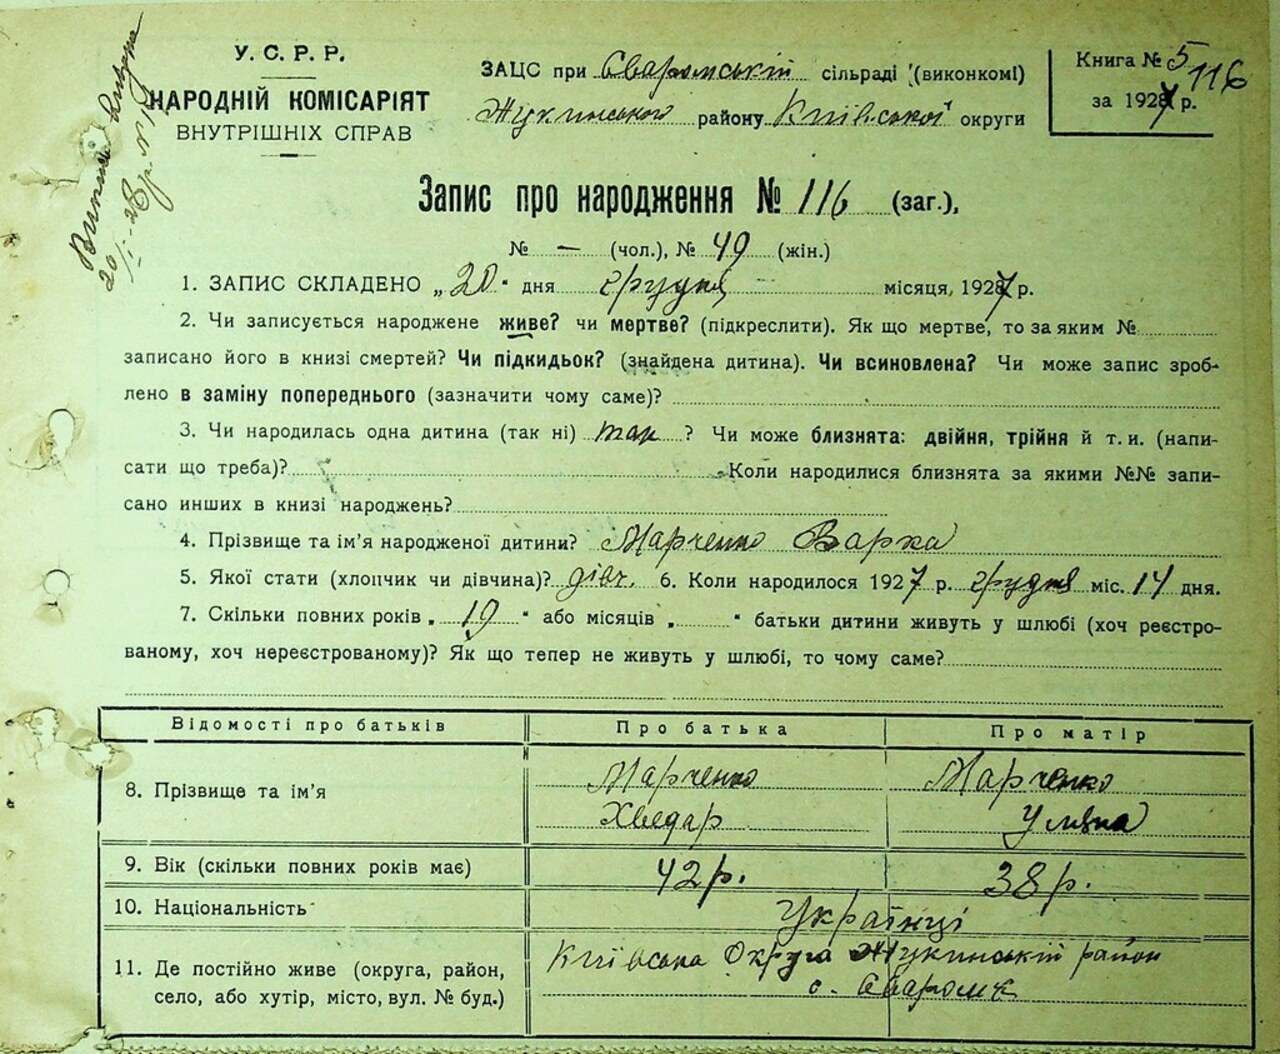 У. С. Р. Р.
НАРОДНІЙ КОМІСАРІЯТ
ВНУТРІШНІХ СПРАВ
ЗАЦС при Сваромській сільраді (виконкомі)
Жукинського району Київської округи
Книга № 5 116
за 1927 р.
Запис про народження № 116 (заг.),
№ — (чол.), № 49 (жін.)
1. ЗАПИС СКЛАДЕНО „20" дня грудня місяця, 1927 р.
2. Чи записується народжене живе? чи мертве? (підкреслити). Як що мертве, то за яким №
записано його в книзі смертей? Чи підкидьок? (знайдена дитина). Чи всиновлена? Чи може запис зроб-
лено в заміну попереднього (зазначити чому саме)?
3. Чи народилась одна дитина (так ні) так ? Чи може близнята: двійня, трійня й т. и. (напи-
сати що треба)? Коли народилися близнята за якими №№ запи-
сано инших в книзі народжень?
4. Прізвище та ім'я народженої дитини? Марченко Варка
5. Якої стати (хлопчик чи дівчина)? дівч. 6. Коли народилося 1927 р. грудня міс. 14 дня.
7. Скільки повних років „ 19 " або місяців „ " батьки дитини живуть у шлюбі (хоч реєстро-
ваному, хоч нереєстрованому)? Як що тепер не живуть у шлюбі, то чому саме?
Відомості про батьків Про батька Про матір
8. Прізвище та ім'я Марченко Хведар Марченко Уляна
9. Вік (скільки повних років має) 42 р. 38 р.
10. Національність Українці
11. Де постійно живе (округа, район,
село, або хутір, місто, вул. № буд.)
Київська Округа Жукинській район
с. Сваромє